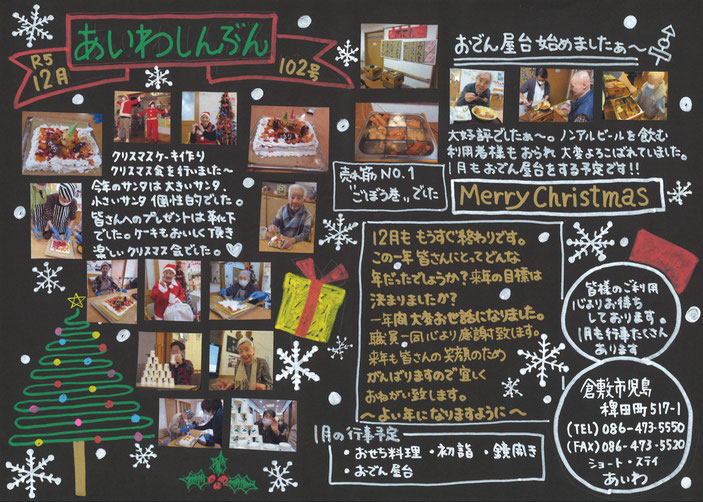 あいわしんぶん
R5
12月
102号
クリスマスケーキ作り
クリスマス会を行いました〜
今年のサンタは大きいサンタ、
小さいサンタ 個性的でした。
皆さんへのプレゼントは靴下
でした。ケーキもおいしく頂き
楽しいクリスマス会でした。
おでん屋台始めましたぁ〜
大好評でしたぁ〜。ノンアルビールを飲む
利用者様もおられ 大変よろこばれていました。
1月もおでん屋台をする予定です!!
売れ筋NO.1
"ごぼう巻"でした
Merry Christmas
12月も もうすぐ終わりです。
この一年 皆さんにとってどんな
年だったでしょうか?来年の目標は
決まりましたか?
一年間大変お世話になりました。
職員一同心より感謝致します。
来年も皆さんの笑顔のため
がんばりますので宜しく
おねがい致します。
〜よい年になりますように〜
皆様のご利用
心よりお待ち
しております。
1月も行事たくさん
あります
1月の行事予定
・おせち料理 ・初詣 ・鏡開き
・おでん屋台
倉敷市児島
稗田町517-1
(TEL) 086-473-5550
(FAX) 086-473-5520
ショート・ステイ
あいわ